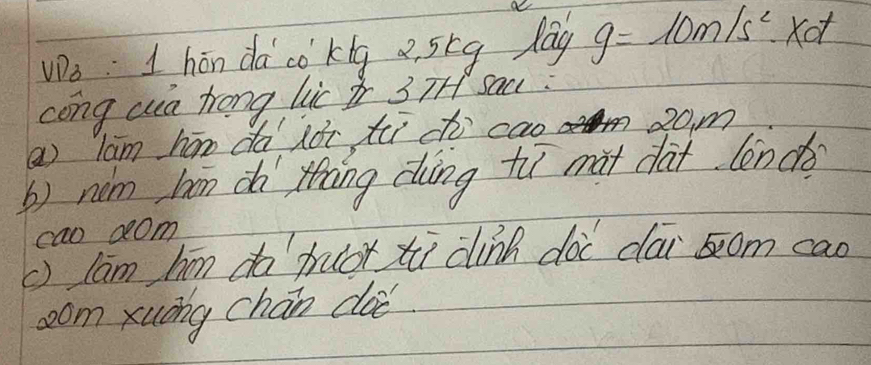 VD3 : 1 hòn đá có klg 2,5kg lấy g = 10m/s². Xđ
công của trọng lực tr 3 TH sau :
a) làm hòn đá rơi từ độ cao 20m
b) ném hòn đá thẳng đứng từ mặt đất lên độ
cao 20m
c) làm hòn đá trượt từ đỉnh dốc dài 50m cao
20m xuống chân dốc.